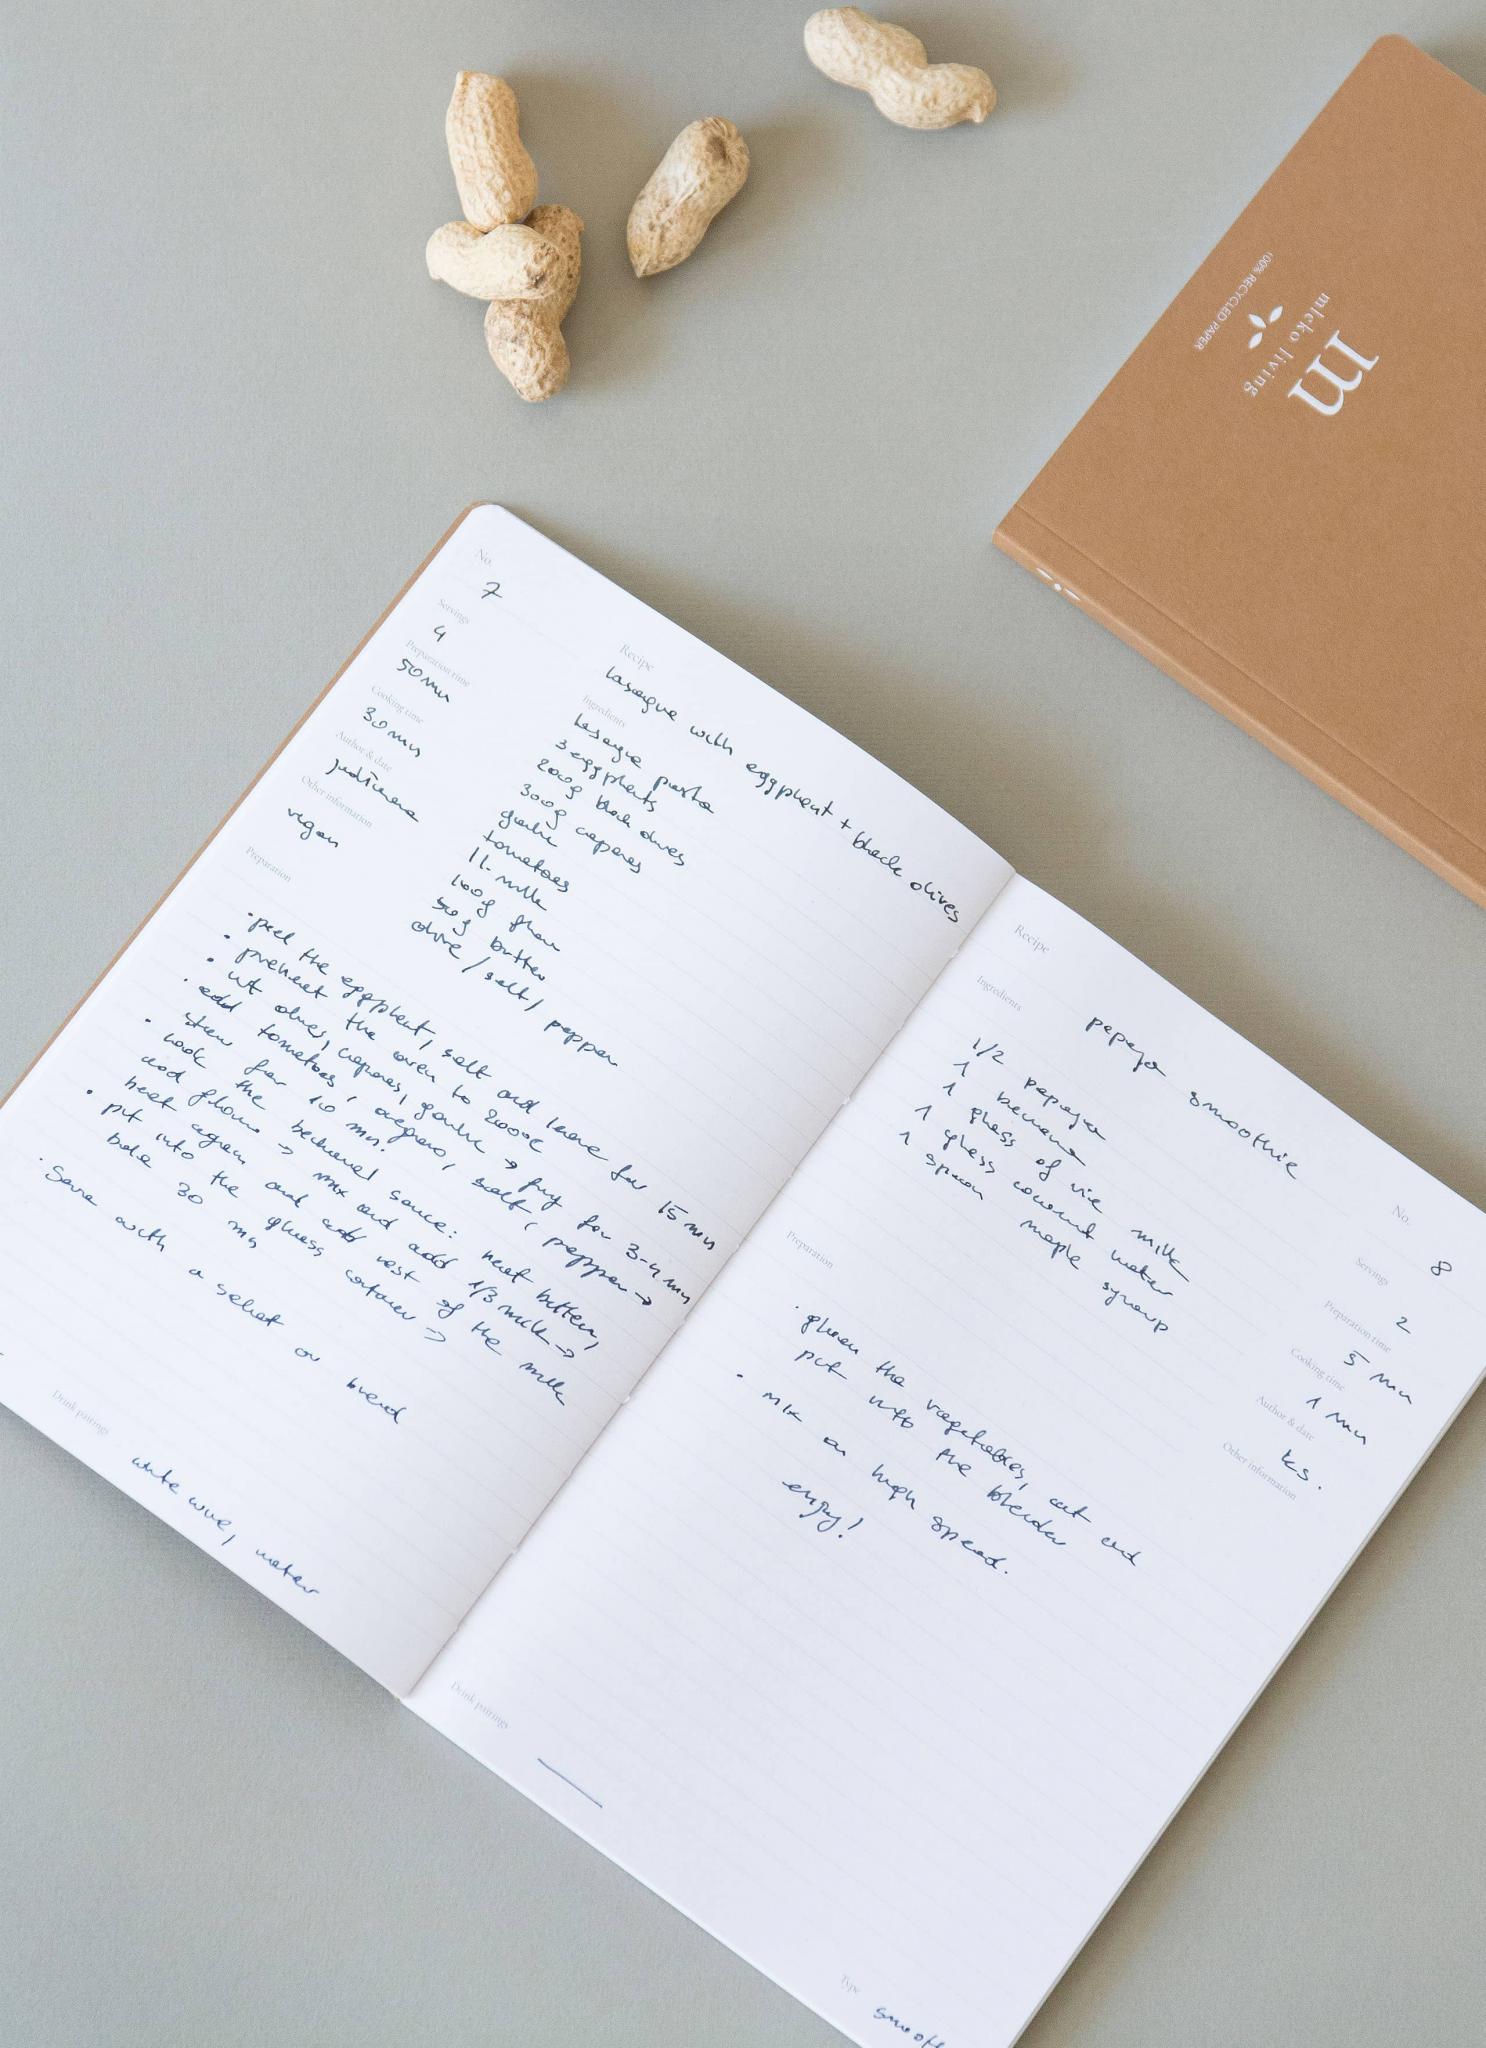 No.
7
Servings
4
Preparation time
50 min
Cooking time
30 min
Author & date
Other information
vegan
Recipe
lasagne with eggplant + black olives
Ingredients
lasagne pasta
3 eggplants
200g black olives
300g capares
garlic
tomatoes
1 L milk
100g flour
50g butter
olive / salt / pepper
Preparation
• peel the eggplant, salt and leave for 15 min
• preheat the oven to 200°C
• cut olives, capares, garlic → fry for 3-4 min
• add tomatoes, oregano, salt, pepper →
stew for 10 min.
• cook the bechamel sauce: heat butter,
add flour → mix and add 1/3 milk →
heat again and add rest of the milk
• put into the glass container →
bake 30 min
• Serve with a salat or bread
Drink pairings
white wine, water
Recipe
papaya smoothie
Ingredients
1/2 papaya
1 banana
1 glass of rice milk
1 glass coconut water
1 spoon maple syroup
No.
8
Servings
2
Preparation time
5 min
Cooking time
1 min
Author & date
ks.
Other information
Preparation
• the vegetables, cut and
put into the blender
• mix on high spead.
enjoy!
Drink pairings
Type
smooth
m
mleko living
100% RECYCLED PAPER